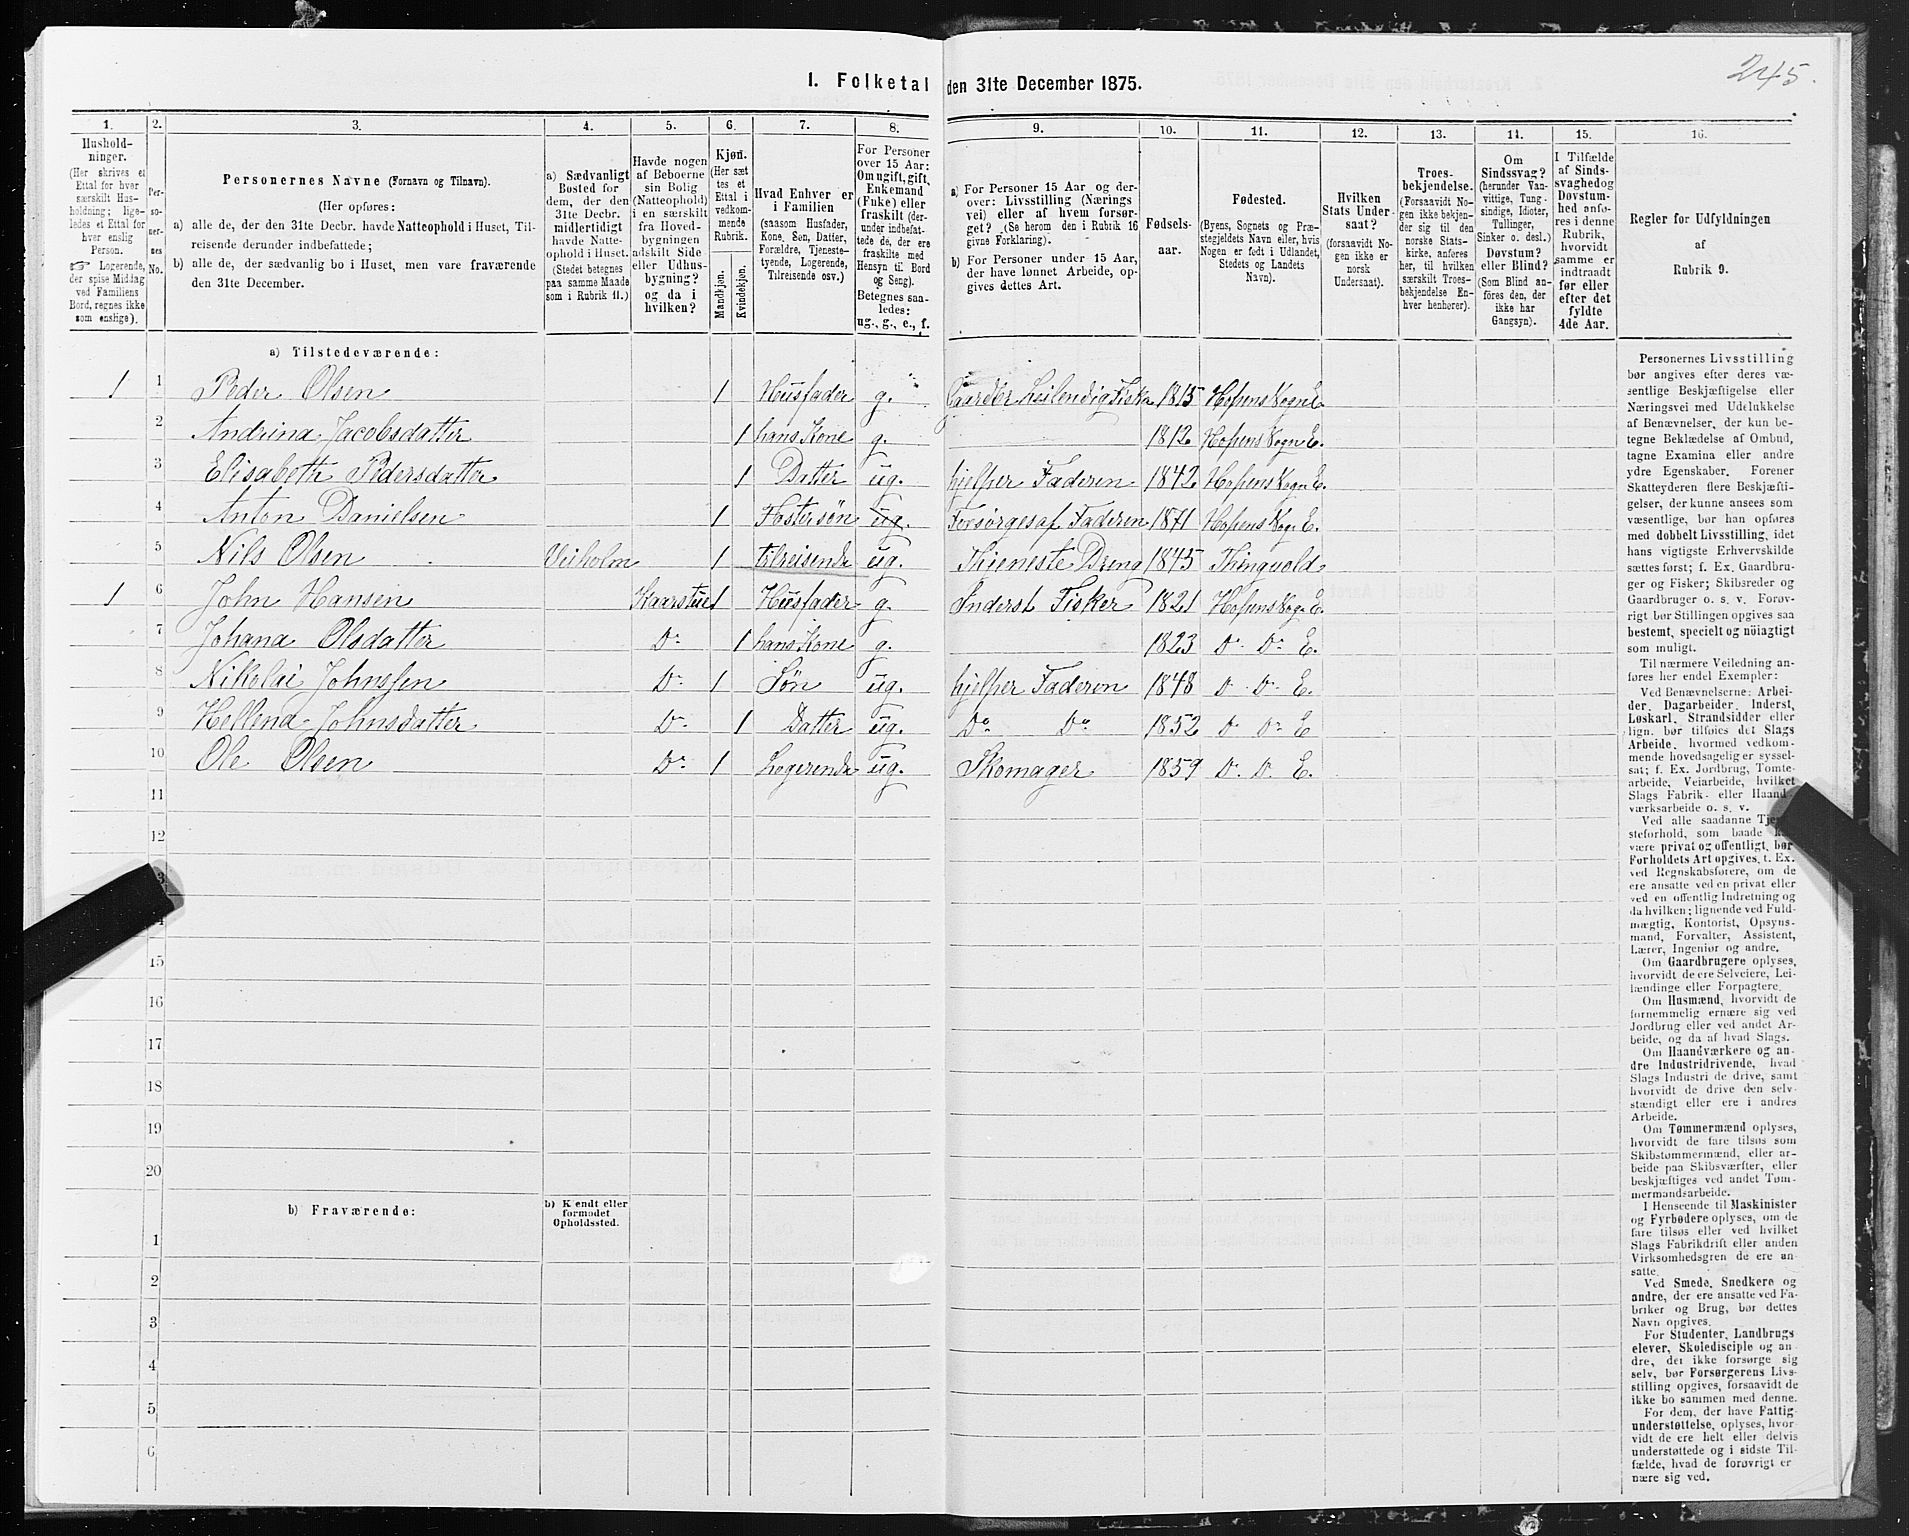 245.
1. Folketal den 31te December 1875.
1. 2. 3. 4. 5. 6. 7. 8. 9. 10. 11. 12. 13. 14. 15. 16.
Hushold-
ninger.
(Her skrives et
Ettal for hver
særskilt Hus-
holdning; lige-
ledes et Ettal for
hver enslig
Person.
☞ Logerende,
der spise Middag
ved Familiens
Bord, regnes ikke
som enslige).
Per-
so-
ner-
nes
No.
Personernes Navne (Fornavn og Tilnavn).
(Her opføres:
a) alle de, der den 31te Decbr. havde Natteophold i Huset, Til-
reisende derunder indbefattede;
b) alle de, der sædvanlig bo i Huset, men vare fraværende
den 31te December.
a) Sædvanligt
Bosted for
dem, der den
31te Decbr.
midlertidigt
havde Natte-
ophold i Huset.
(Stedet betegnes
paa samme Maade
som i Rubrik 11.)
Havde nogen
af Beboerne
sin Bolig
(Natteophold)
i en særskilt
fra Hoved-
bygningen
adskilt Side-
eller Udhus-
bygning?
og da i
hvilken?
Kjøn.
(Her sæt-
tes et
Ettal i
vedkom-
mende
Rubrik.
Mandkjøn.
Kvindekjøn.
Hvad Enhver er
i Familien
(saasom Husfader,
Kone, Søn, Datter,
Forældre, Tjeneste-
tyende, Logerende,
Tilreisende osv.)
For Personer
over 15 Aar:
Om ugift, gift,
Enkemand
(Enke) eller
fraskilt (der-
under indbefat-
tede de, der ere
fraskilte med
Hensyn til Bord
og Seng).
Betegnes saa-
ledes:
ug., g., e., f.
a) For Personer 15 Aar og der-
over: Livsstilling (Nærings-
vei) eller af hvem forsør-
get? (Se herom den i Rubrik 16
givne Forklaring).
b) For Personer under 15 Aar,
der have lønnet Arbeide, op-
gives dettes Art.
Fødsels-
aar.
Fødested.
(Byens, Sognets og Præ-
stegjeldets Navn eller, hvis
Nogen er født i Udlandet,
Stedets og Landets
Navn).
Hvilken
Stats Under-
saat?
(forsaavidt No-
gen ikke er
norsk
Undersaat).
Troes-
bekjendelse.
(Forsaavidt No-
gen ikke bekjen-
der sig til den
norske Stats-
kirke, anføres
her, til hvilken
særskilt Troes-
bekjendelse En-
hver henhører).
Om
Sindssvag?
(herunder Van-
vittige, Tung-
sindige, Idioter,
Tullinger,
Sinker o. desl.)
Døvstum?
eller Blind?
(Som Blind an-
føres den, der
ikke har
Gangsyn).
I Tilfælde
af Sinds-
svaghed og
Døvstum-
hed anfø-
res i denne
Rubrik,
hvorvidt
samme er
indtraadt
før eller
efter det
fyldte
4de Aar.
Regler for Udfyldningen
af
Rubrik 9.
a) Tilstedeværende:
1 1 Peder Olsen 1 Husfader g. Gaardbr Leilendig Fisker 1815 Hopens Sogn E.
2 Andrina Jacobsdatter 1 hans Kone g. 1812 Hopens Sogn E.
3 Elisabeth Pedersdatter 1 Datter ug. hjelper Faderen 1842 Hopens Sogn E.
4 Anton Danielsen 1 Fostersøn ug. Forsørges af Faderen 1871 Hopens Sogn E.
5 Nils Olsen Veiholm 1 tilreisende ug. Thieneste Dreng 1845 Thingvold
1 6 John Hansen Kaarstue 1 Husfader g. Inderst Fisker 1821 Hopens Sogn E.
7 Johana Olsdatter Do 1 hans Kone g. 1823 Do Do E.
8 Nikolai Johnssen Do 1 Søn ug. hjelper Faderen 1848 Do Do E.
9 Hellena Johnsdatter Do 1 Datter ug. Do Do 1852 Do Do E
10 Ole Olsen Do 1 Logerende ug. Skomager 1859 Do Do E.
11
12
15
16
17
18
19
20
b) Fraværende:
b) Kendt eller
formodet
Opholdssted.
1
2
3
4
5
6
Personernes Livsstilling
bør angives efter deres væ-
sentlige Beskjæftigelse eller
Næringsvei med Udelukkelse
af Benævnelser, der kun be-
tegne Beklædelse af Ombud,
tagne Examina eller andre
ydre Egenskaber. Forener
Skatteyderen flere Beskjæfti-
gelser, der kunne ansees som
væsentlige, bør han opføres
med dobbelt Livsstilling, idet
hans vigtigste Erhvervskilde
sættes først; f. Ex. Gaardbru-
ger og Fisker; Skibsreder og
Gaardbruger o. s. v. Forøv-
rigt bør Stillingen opgives saa
bestemt, specielt og nøiagtigt
som muligt.
Til nærmere Veiledning an-
føres her endel Exempler:
Ved Benævnelserne: Arbei-
der, Dagarbeider, Inderst,
Løskarl, Strandsidder eller
lign. bør tilføies det Slags
Arbeide, hvormed vedkom-
mende hovedsagelig er syssel-
sat; f. Ex. Jordbrug, Tomte-
arbeide, Veiarbeide, hvilket
Slags Fabrik- eller Haand-
værksarbeide o. s. v.
Ved alle saadanne
steforhold, som baade
være privat og offentligt, bør
Forholdets Art opgives, t. Ex.
ved Regnskabsførere, om de
ere ansatte ved en privat eller
ved en offentlig Indretning og
da hvilken; lignende ved Fuld-
mægtig, Kontorist, Opsyns-
mand, Forvalter, Assistent,
Lærer, Ingeniør og andre.
Om Gaardbrugere oplyses,
hvorvidt de ere Selveiere, Lei-
lændinge eller Forpagtere.
Om Husmænd, hvorvidt de
fornemmelig ernære sig ved
Jordbrug eller ved andet Ar-
beide, og da af hvad Slags.
Om Haandværkere og an-
dre Industridrivende, hvad
Slags Industri de drive, samt
hvorvidt de drive den selv-
stændigt eller ere i andres
Arbeide.
Om Tømmermænd oplyses,
hvorvidt de fare tilsøs som
Skibstømmermænd, eller ar-
beide paa Skibsværfter, eller
beskjæftiges ved andet Tøm-
mermandsarbeide.
I Henseende til Maskinister
og Fyrbødere oplyses, om de
fare tilsøs eller ved hvilket
Slags Fabrikdrift eller anden
Virksomhedsgren de ere an-
satte.
Ved Smede, Snedkere og
andre, der ere ansatte ved Fa-
briker og Brug, bør dettes
Navn opgives.
For Studenter, Landbrugs
elever, Skoledisciple og an-
dre, der ikke forsørge sig
selv, bør Forsørgerens Livs-
stilling opgives, forsaavidt de
ikke bo sammen med denne.
For dem, der have Fattig-
understøttelse, oplyses, hvor-
vidt de ere helt eller delvis
understøttede og i sidste Til-
fælde, hvad de forøvrigt er-
nære sig ved.